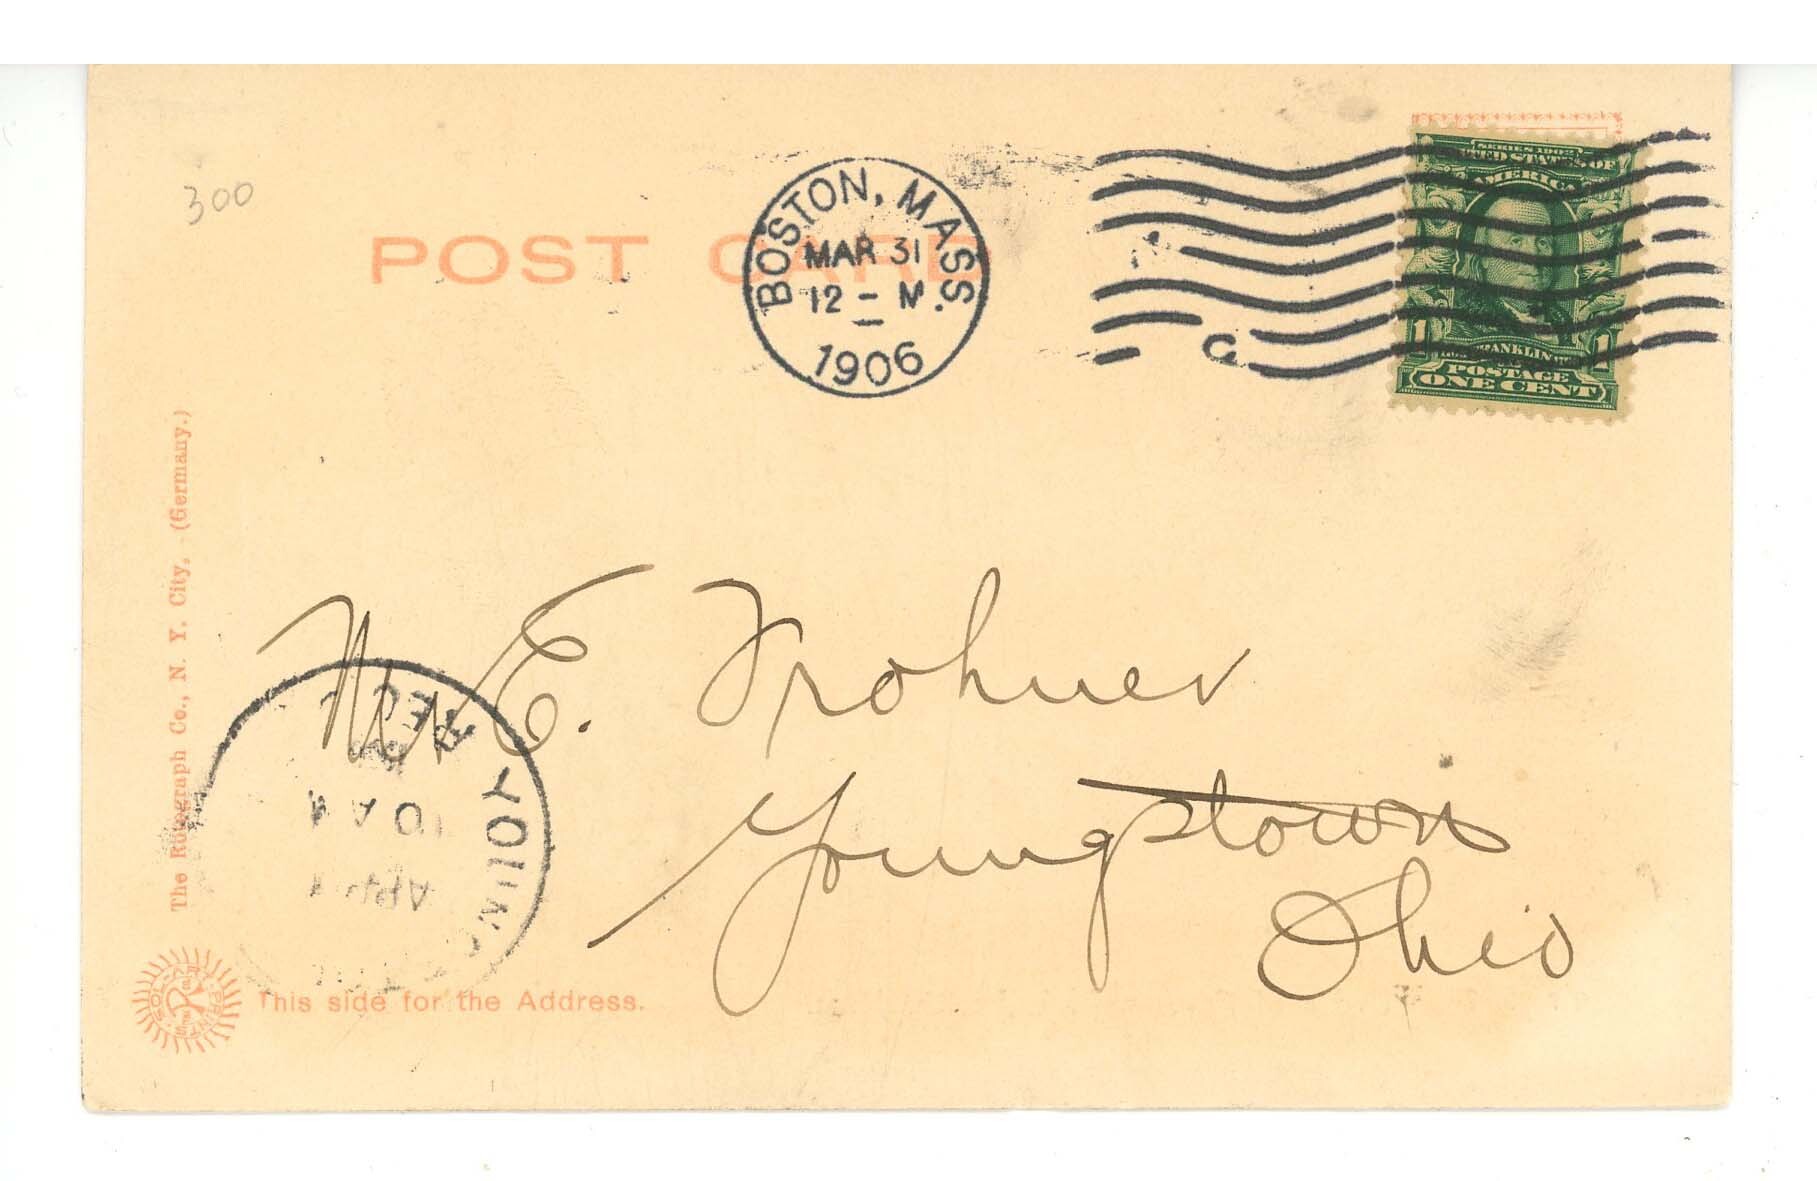 300
POST CARD
BOSTON, MASS.
MAR 31
12 - M.
1906
C
SERIES 1902
UNITED STATES OF
AMERICA
1 FRANKLIN 1
POSTAGE
ONE CENT
The Rotograph Co., N. Y. City. (Germany.)
W. E. Frohner
Youngstown
Ohio
REC'
YOUN
10 A
SOL-ART PRINTS
This side for the Address.